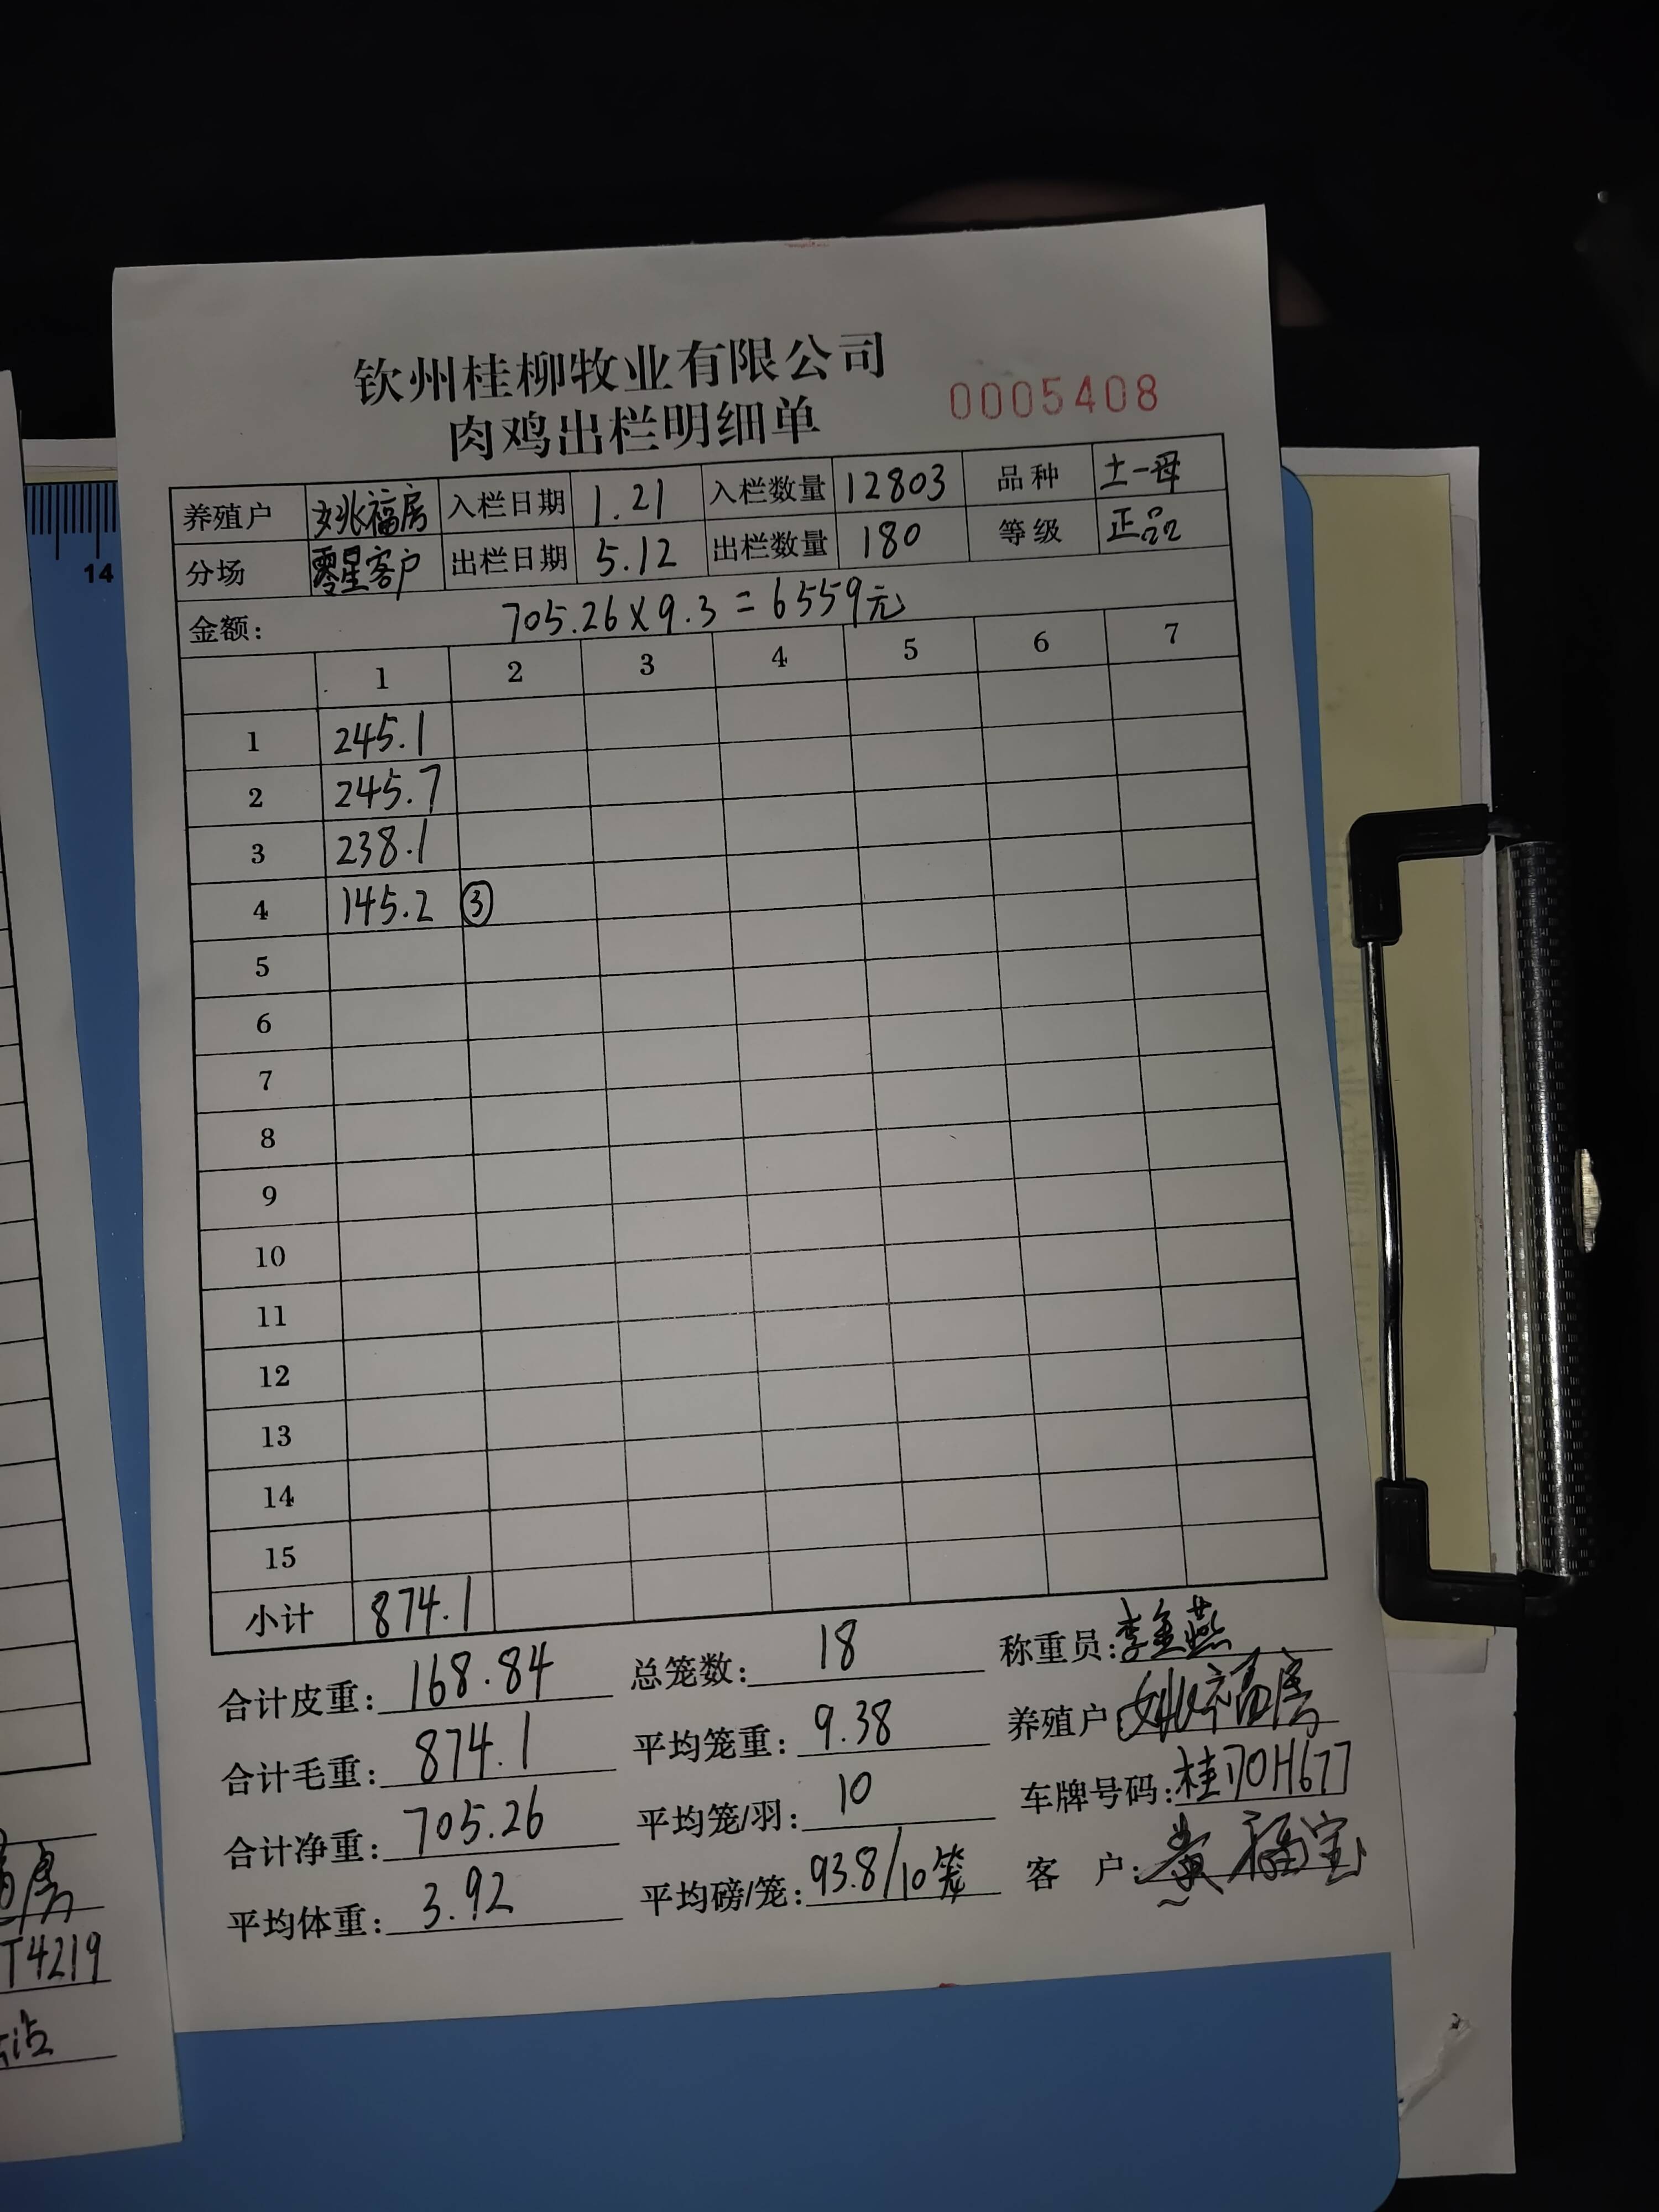 钦州桂柳牧业有限公司
肉鸡出栏明细单 0005408
养殖户 姚福房 入栏日期 1.21 入栏数量 12803 品种 土一母
分场 零星客户 出栏日期 5.12 出栏数量 180 等级 正品
金额: 705.26×9.3=6559元
1 2 3 4 5 6 7
1 245.1
2 245.7
3 238.1
4 145.2 ③
5
6
7
8
9
10
11
12
13
14
15
小计 874.1
合计皮重: 168.84 总笼数: 18 称重员: 李金燕
合计毛重: 874.1 平均笼重: 9.38 养殖户 姚福房
合计净重: 705.26 平均笼/羽: 10 车牌号码: 桂70H677
平均体重: 3.92 平均磅/笼: 93.8/10笼 客户: 黄福宝
14
T4219